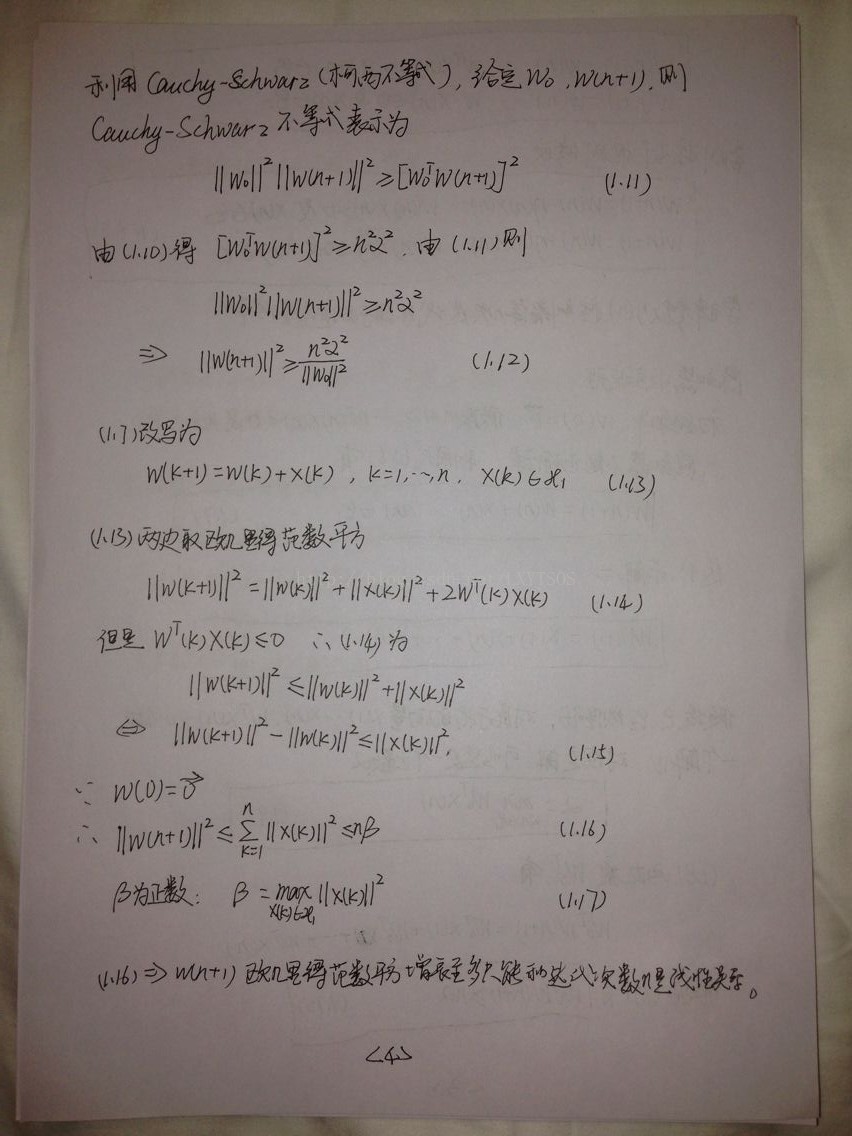 利用Cauchy-Schwarz(柯西不等式), 给定W₀, W(n+1), 则
Cauchy-Schwarz不等式表示为
||W₀||²||W(n+1)||² ≥ [W₀ᵀW(n+1)]² (1.11)
由(1.10)得 [W₀ᵀW(n+1)]² ≥ n²α². 由(1.11)则
||W₀||²||W(n+1)||² ≥ n²α²
⇒ ||W(n+1)||² ≥ n²α²/||W₀||² (1.12)
(1.7)改写为
W(k+1)=W(k)+X(k), k=1,…,n. X(k)∈ℋ₁ (1.13)
(1.13)两边取欧几里得范数平方
||W(k+1)||² = ||W(k)||² + ||X(k)||² + 2Wᵀ(k)X(k) (1.14)
但是 Wᵀ(k)X(k) ≤ 0 ∴ (1.14)为
||W(k+1)||² ≤ ||W(k)||² + ||X(k)||²
⇔ ||W(k+1)||² - ||W(k)||² ≤ ||X(k)||², (1.15)
∵ W(0)=0⃗
∴ ||W(n+1)||² ≤ ∑_{k=1}^{n} ||X(k)||² ≤ nβ (1.16)
β为正数: β = max_{X(k)∈ℋ₁} ||X(k)||² (1.17)
(1.16) ⇒ W(n+1)欧几里得范数平方增长至多只能和迭代次数n是线性关系。
<4>